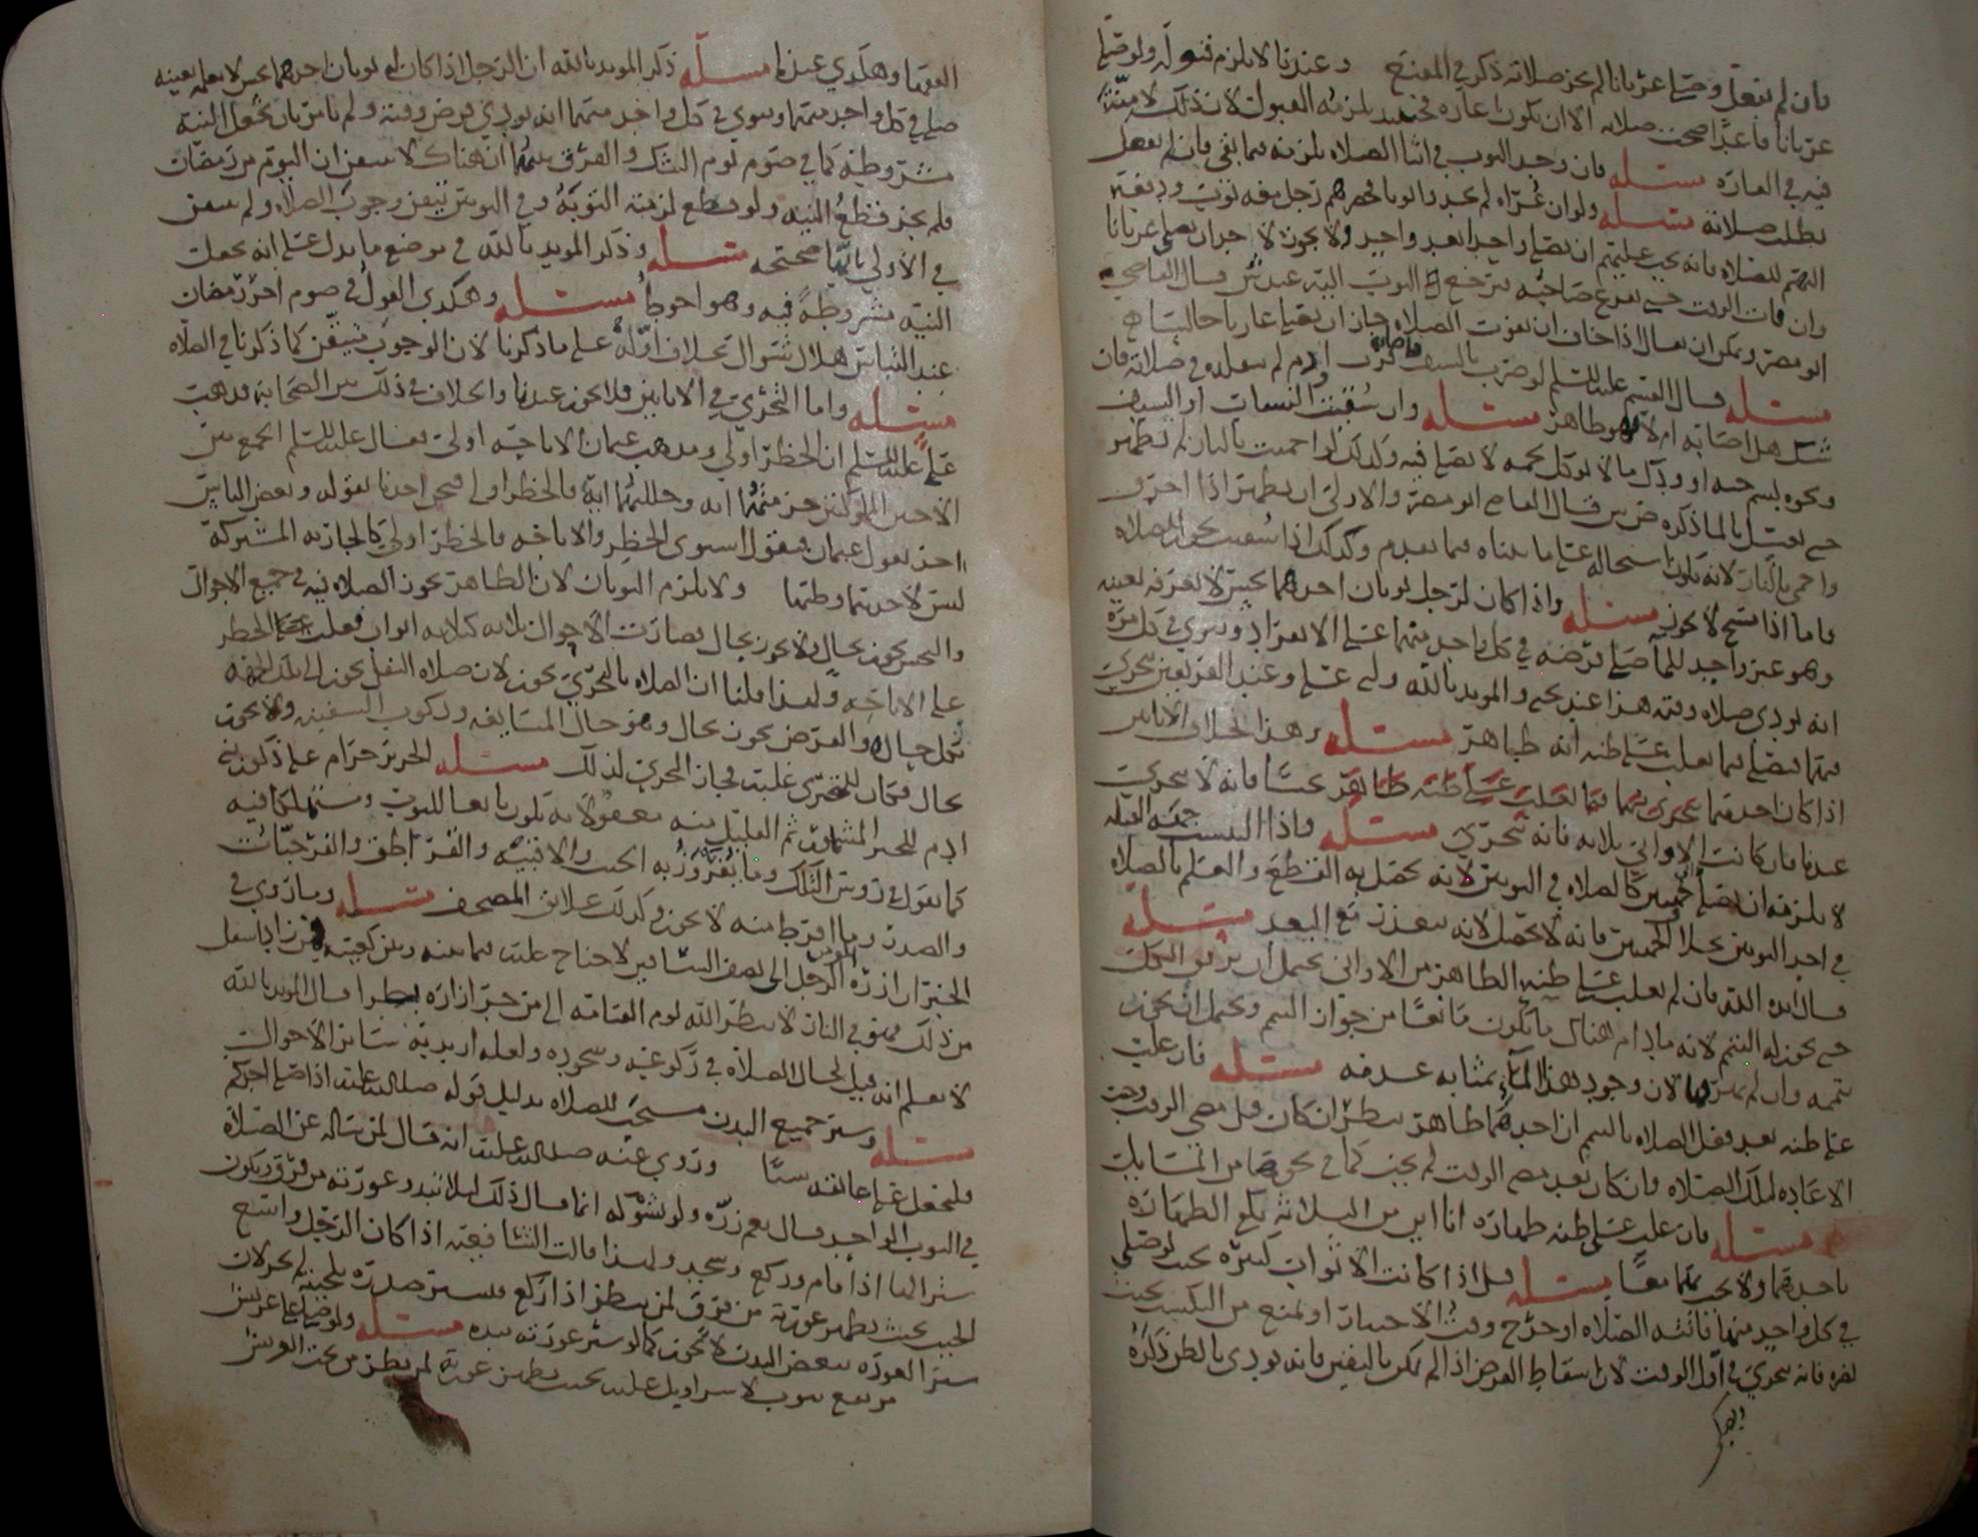 فان لم يفعل وصلى عريانا لم تجز صلاته ذكره في المقنع وعندنا لا يلزم قبوله ولو صلى
عريانا قاعدا صحت صلاته الا ان يكون اعاره فحينئذ يلزمه القبول لان ذلك لا منة
فيه في العارة مسئله فان وجد الثوب في اثنا الصلاه يلزمه فيما بقي فان لم يفعل
بطلت صلاته مسئله ولو ان عراه لم يجدوا ثوبا فحضرهم رجل معه ثوب ودفعه
اليهم للصلاه فانه يجب عليهم ان يصلي واحدا بعد واحد ولا يجوز لاحد ان يصلي عريانا
وان فات الوقت حتى يفرغ صاحبه ثم يرجع الثوب اليه عند من قال القاضي
ابو مضر ويمكن ان يقال اذا خاف ان تفوت الصلاه جاز ان يصليها عاريا جالسا
مسئله قال القسم عليه السلم لو ضرب بالسيف ادم لم يعلم في صلاته فان
شك هل اصابه ام لا فهو طاهر مسئله وان سقيت او السيف
ونحوه بسم حيه او وبول ما لا يوكل لحمه لا يصلي فيه وكذلك لو احميت بالنار لم تطهر
حتى يغسل بالما ذكره ض قال القاضي ابو مضر والاولى ان يطهر اذا احرق
واحمي بالنار لانه يكون استحاله على ما بيناه فيما تقدم وكذلك اذا سقيت بخمر للصلاه
فاما اذا مسح لا يجوز مسئله واذا كان لرجل ثوبان احدهما نجس لا يعرفه بعينه
وهو غير واجد للما صلى فرضه في كل واحد منهما على الانفراد وينوي في كل مره
انه يودي صلاه وقته هذا عند يحيى والمويد بالله وابي علي وعند الفريقين يتحرى
فيهما فيصلي فيما يغلب على ظنه انه طاهر مسئله وهذا بخلاف الاناين
اذا كان احدهما نجسا فانه لا يتحرى
عندنا فان كانت الاواني ثلاثه فانه يتحرى مسئله واذا التبست جهة القبله
لا يلزمه ان يصلي كالصلاه في الثوبين لانه يحصل به القطع والعلم بالصلاه
في احد الثوبين بخلاف الجهتين فانه لا يحصل لانه يتعذر مع البعد مسئله
قال ايده الله فان لم يغلب على ظنه الطاهر من الاواني يحتمل ان يريق الكل
حتى يجوز له التيمم لانه ما دام هناك ما يكون مانعا من جواز التيمم ويحتمل ان يجوز
تيممه وان لم يهرقها لان وجود هذا الماء بمثابه عدمه مسئله فان غلب
على ظنه بعد فعل الصلاه بالتيمم ان احدهما طاهر ينظر ان كان قبل مضي الوقت وجب
الاعاده لتلك الصلاه وان كان بعد مضي الوقت لم يجب كما في نحوها من المسايل
مسئله فان غلب على ظنه طهاره اناين من الثلاثه يكفي الطهاره
باحدهما ولا يجب بهما معا مسئله قيل اذا كانت الاثواب كثيره بحيث لو صلى
في كل واحد منها فاتته الصلاه او خرج وقت الاختيار او لمنع من التكسب بحيث
يضره فانه يتحرى في اول الوقت لان اسقاط الفرض اذا لم يكن باليقين فانه يودى بالظن ذكره
الفقها وهكذي عندنا مسئله ذكر المويد بالله ان الرجل اذا كان له ثوبان احدهما نجس لا يعلمه بعينه
صلى في كل واحد منهما وينوي في كل واحد منهما انه يودي فرض وقته ولم يامر بان يجعل النيه
مشروطه كما في صوم يوم الشك والفرق بينهما ان هناك لا يتيقن ان اليوم من رمضان
فلم يجز قطع النيه ولو قطع لزمته التوبه وفي الثوبين تيقن وجوب الصلاه ولم يتيقن
في الاولى بانها صحيحه مسئله وذكر المويد بالله في موضع ما يدل على انه يجعل
النيه مشروطة فيه وهو احوط مسئله وهكذي القول في صوم اخر رمضان
عند التباس هلال شوال بخلاف اوله على ما ذكرنا لان الوجوب متيقن كما ذكرنا في الصلاه
مسئله واما التحري في الاناين فلا يجوز عندنا والخلاف في ذلك بين الصحابه مذهب
علي عليه السلم ان الحظر اولى ومذهب عثمان الاباحه اولى فقال عليه السلم الجمع بين
الاختين المملوكتين حرمتهما ايه وحللتهما ايه فالحظر اولى فنحن اخذنا بقوله وبعض الناس
اخذ بقول عثمان فنقول استوى الحظر والاباحه فالحظر اولى كالجاريه المشتركه
ليس لاحدهما وطئها ولا يلزم الثوبان لان الطاهر تجوز الصلاه فيه في جميع الاحوال
والنجس يجوز بحال ولا يجوز بحال فصارت الاحوال ثلاثه كثلاثه اواني فغلبت على الحظر
على الاباحه ولهذا قلنا ان الصلاه بالتحري يجوز لان صلاه النفل يجوز الى تلك الجهه
بكل حال والفرض يجوز بحال وهو حال المسايفه وركوب السفينه ولا يجوز
بحال فكان للتحري غلبه فجاز التحري لذلك مسئله الحرير حرام على ذكور بني
ادم للخبر المشهور ثم القليل منه معفو لانه يكون تابعا للثوب ومستهلكا فيه
كما نقول في رؤس التكك وما يفروز به الجباب والاقبيه والقراطق والفرجيات
والصدر وما افرط منه لا يجوز وكذلك علايق المصحف مسئله وما روي في
الخبر ان ازره الرجل المومن الى نصف الساقين لا جناح عليه فيما بينه وبين كعبيه فمن زاد اسفل
من ذلك فهو في النار لا ينظر الله يوم القيامه الى من جر ازاره بطرا قال المويد بالله
لا نعلم انه قيل لحال الصلاه في ركوعه وسجوده ولعله اريد به ساير الاحوال
مسئله وستر جميع البدن مستحب للصلاه بدليل قوله صلى الله عليه اذا صلى احدكم
فليجعل على عاتقه شيا وروي عنه صلى الله عليه انه قال لمن ساله عن الصلاه
في الثوب الواحد فقال نعم زره ولو بشوكه انما قال ذلك ليلا تبدو عورته من فوق ويكون
ستر لها اذا قام وركع وسجد ولهذا قالت الشافعيه اذا كان الرجل واسع
الجيب بحيث يظهر عورته من فوق لمن ينظر اذا ركع فيستر صدره بلحيته لم يجز لان
ستر العوره ببعض البدن لا يجوز كما لو ستر عورته بيده مسئله ولو صلى على عريش
مرتفع بثوب لا سراويل عليه بحيث يظهر عورته لمن ينظر من تحت العريش